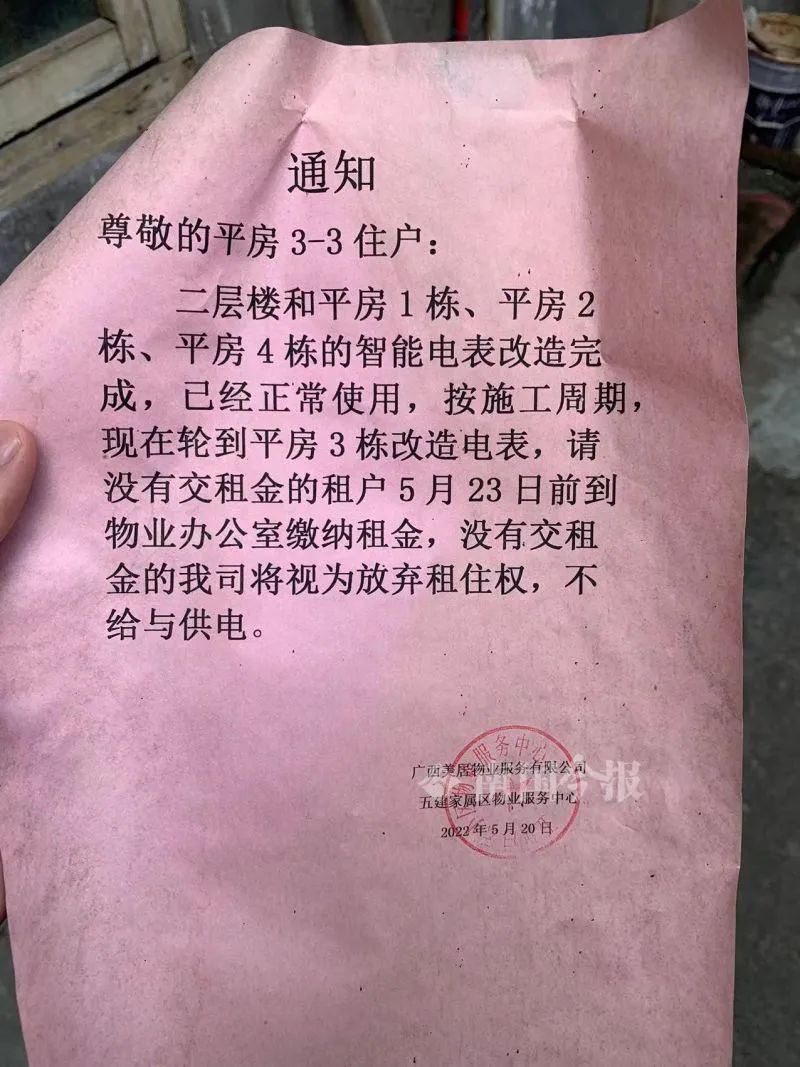 通知
尊敬的平房 3-3 住户：
二层楼和平房 1 栋、平房 2
栋、平房 4 栋的智能电表改造完
成，已经正常使用，按施工周期，
现在轮到平房 3 栋改造电表，请
没有交租金的租户 5 月 23 日前到
物业办公室缴纳租金，没有交租
金的我司将视为放弃租住权，不
给与供电。
服务中心
广西美居物业服务有限公司
南国今报
五建家属区物业服务中心
2022 年 5 月 20 日